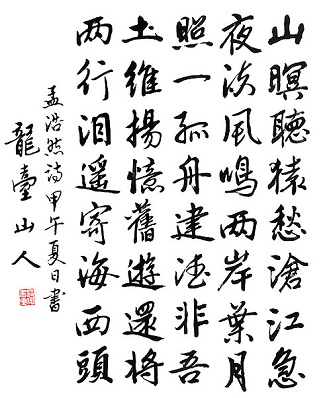 山暝聽猿愁滄江急
夜流風鳴两岸葉月
照一孤舟建德非吾
土維揚憶舊遊還將
两行泪遥寄海西頭
孟浩然詩甲午夏日書
龍臺山人